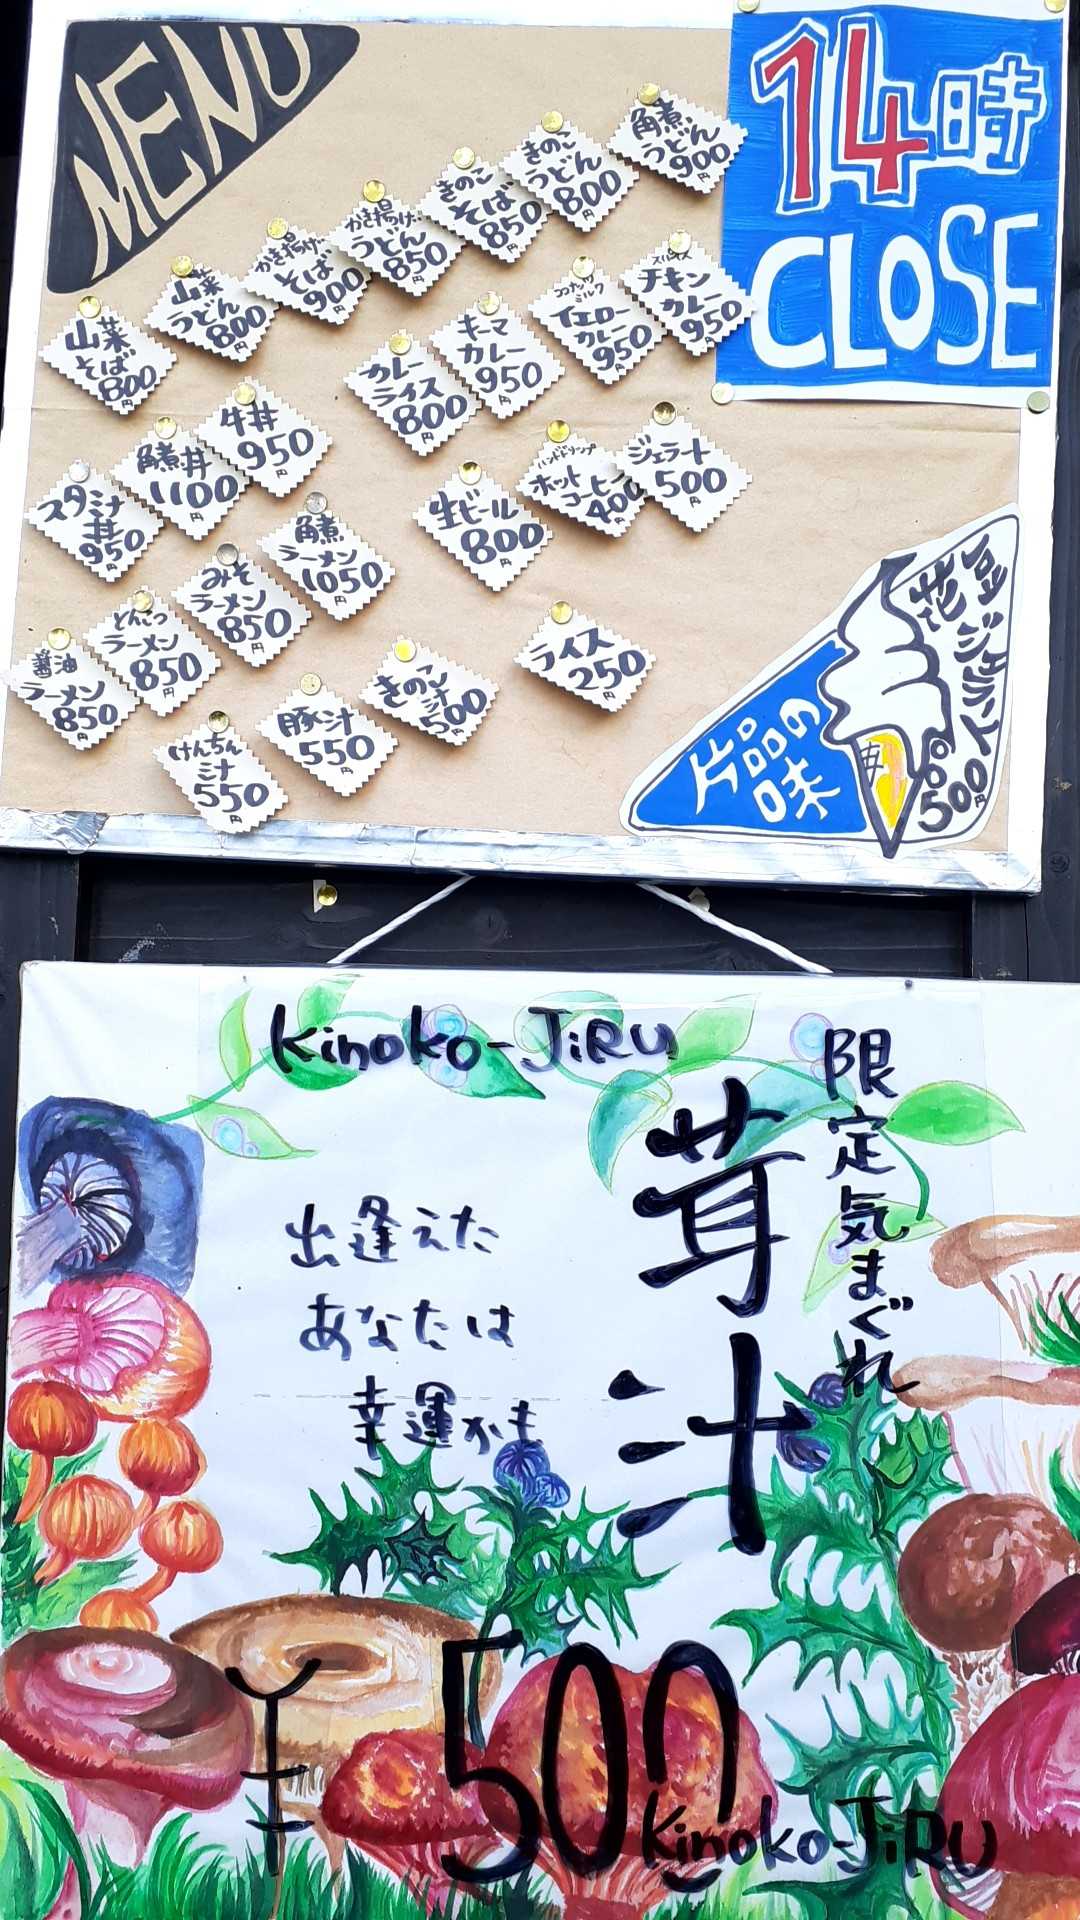 MENU
14時
CLOSE
角煮
うどん
900
きのこ
うどん
800円
きのこ
そば
850円
かき揚げ
うどん
850円
かき揚げ
そば
900円
山菜
うどん
800円
山菜
そば
800円
チキン
カレー
950円
ココナッツ
ミルク
イエロー
カレー
950円
キーマ
カレー
950円
カレー
ライス
800円
牛丼
950円
角煮丼
1100円
スタミナ
丼
950円
ジェラート
500円
ハンドドリップ
ホット
コーヒー
400円
生ビール
800円
角煮
ラーメン
1050円
みそ
ラーメン
850円
とんこつ
ラーメン
850円
醤油
ラーメン
850円
ライス
250円
きのこ
汁
500円
豚汁
550円
けんちん
汁
550円
片品の
味
花豆ジェラート
500円
Kinoko-JiRU
限定気まぐれ
茸汁
出逢えた
あなたは
幸運かも
¥500
Kinoko-JiRU